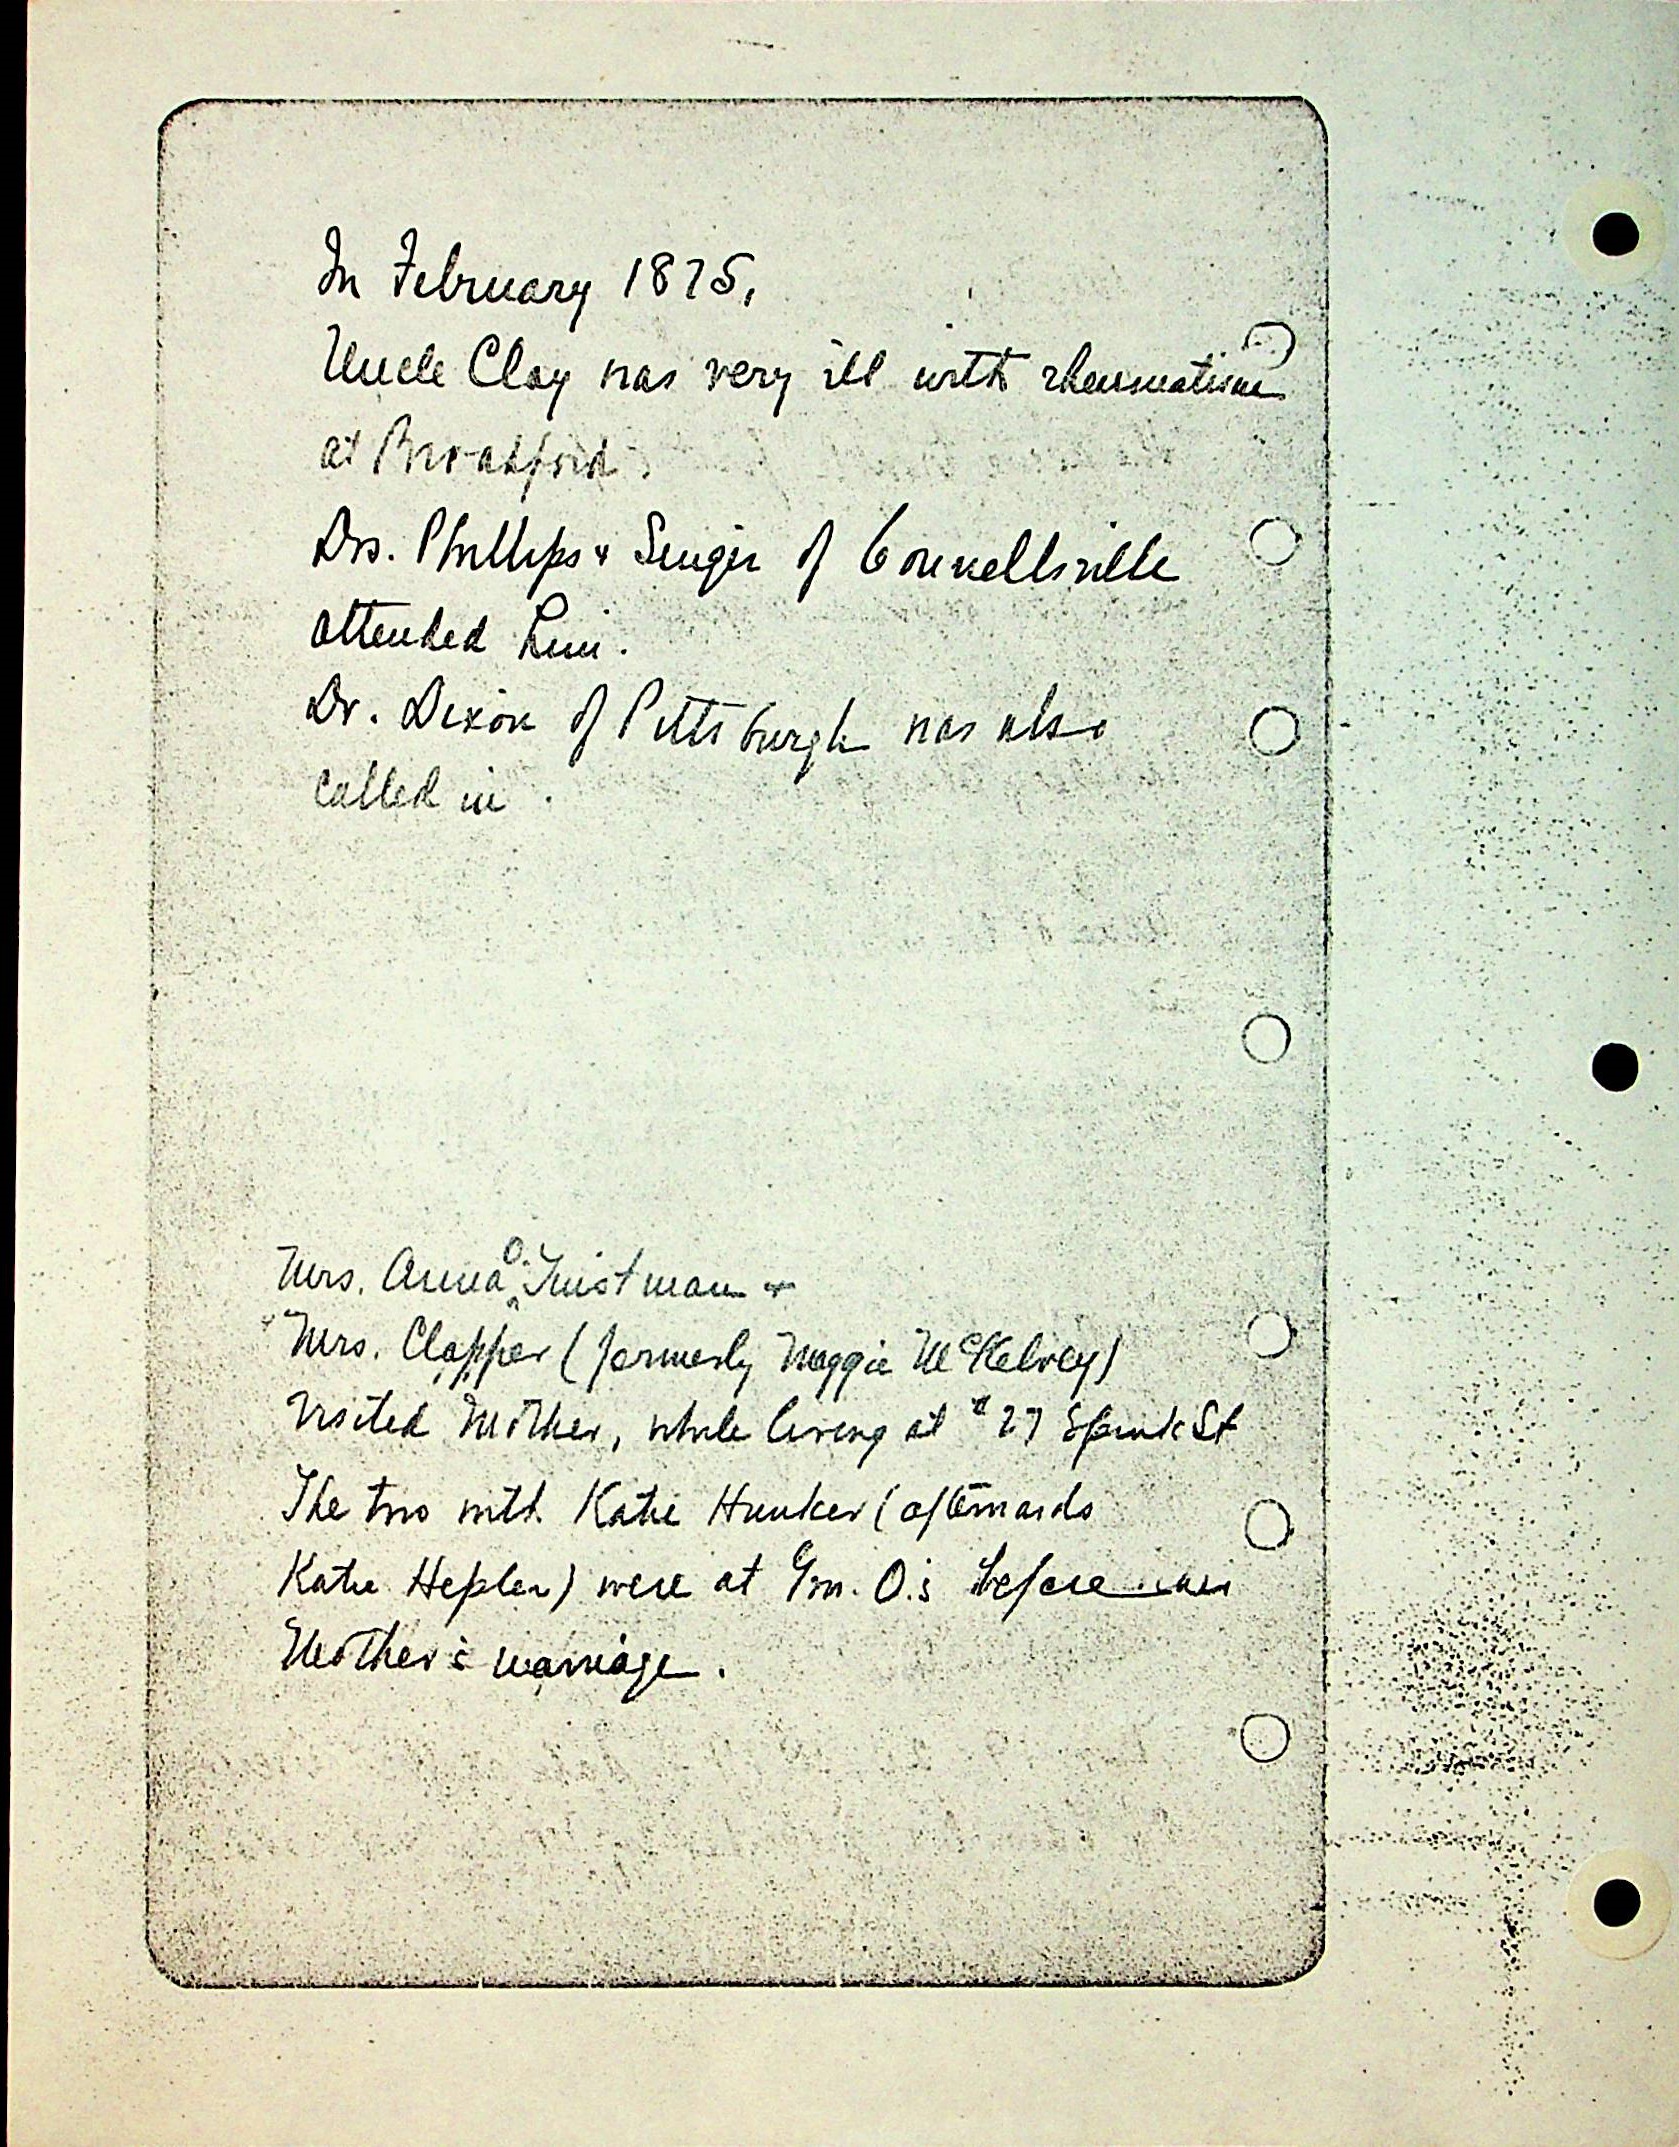 In February 1875,
Uncle Clay was very ill with rheumatism
at Broadford.
Drs. Phillips & Singer of Connellsville
attended him.
Dr. Dixon of Pittsburgh was also
called in.
Mrs. Anna O. Tinstman &
" Mrs. Clapper (formerly Maggie McKelvey)
visited Mother, while living at #27 Spink St
The two with Katie Hunker (afterwards
Katie Hepler) were at Gm. O.'s before
Mother's marriage.